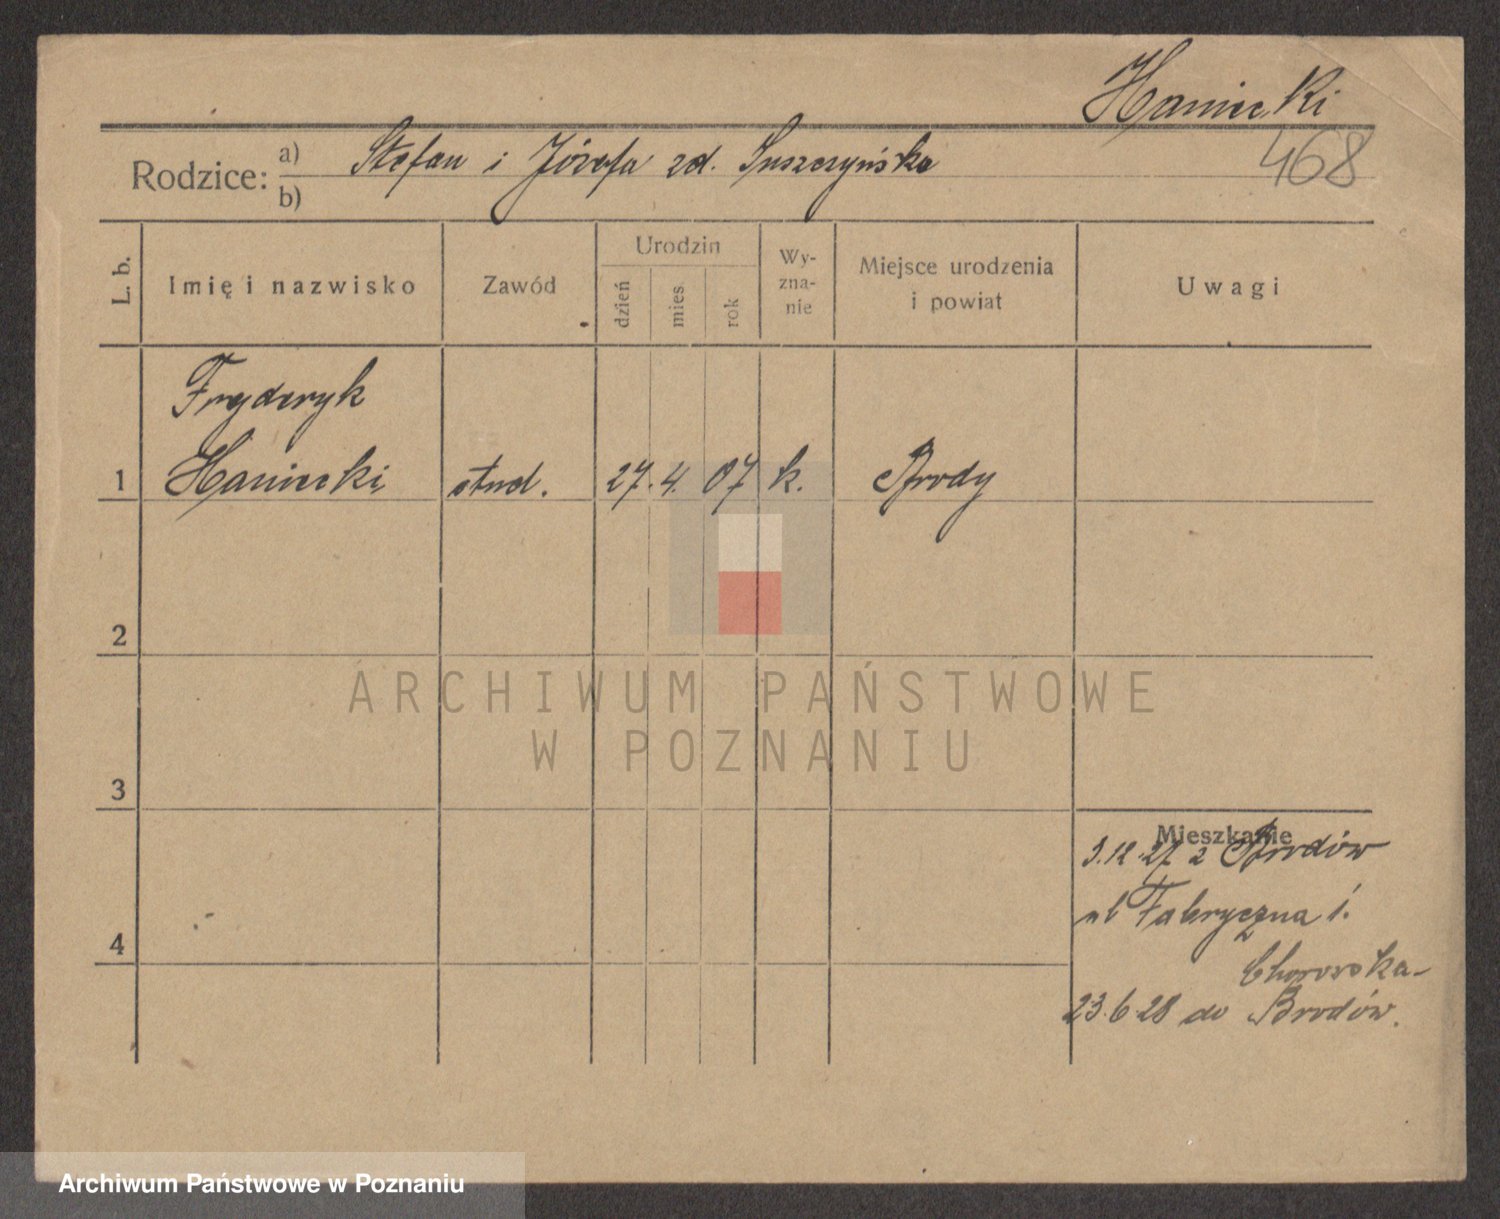 Haniecki
468
Rodzice: a) Stefan i Józefa zd. Suszczyńska
b)
L. b. Imię i nazwisko Zawód Urodzin dzień mies. rok Wy-zna-nie Miejsce urodzenia i powiat Uwagi
Fryderyk
1 Haniecki stud. 27. 4. 07 k. Brody
2
ARCHIWUM PAŃSTWOWE
W POZNANIU
3
Mieszkanie
3.12.27 z Brodów
ul Fabryczna 1.
4
23.6.28 do Brodów.
Archiwum Państwowe w Poznaniu